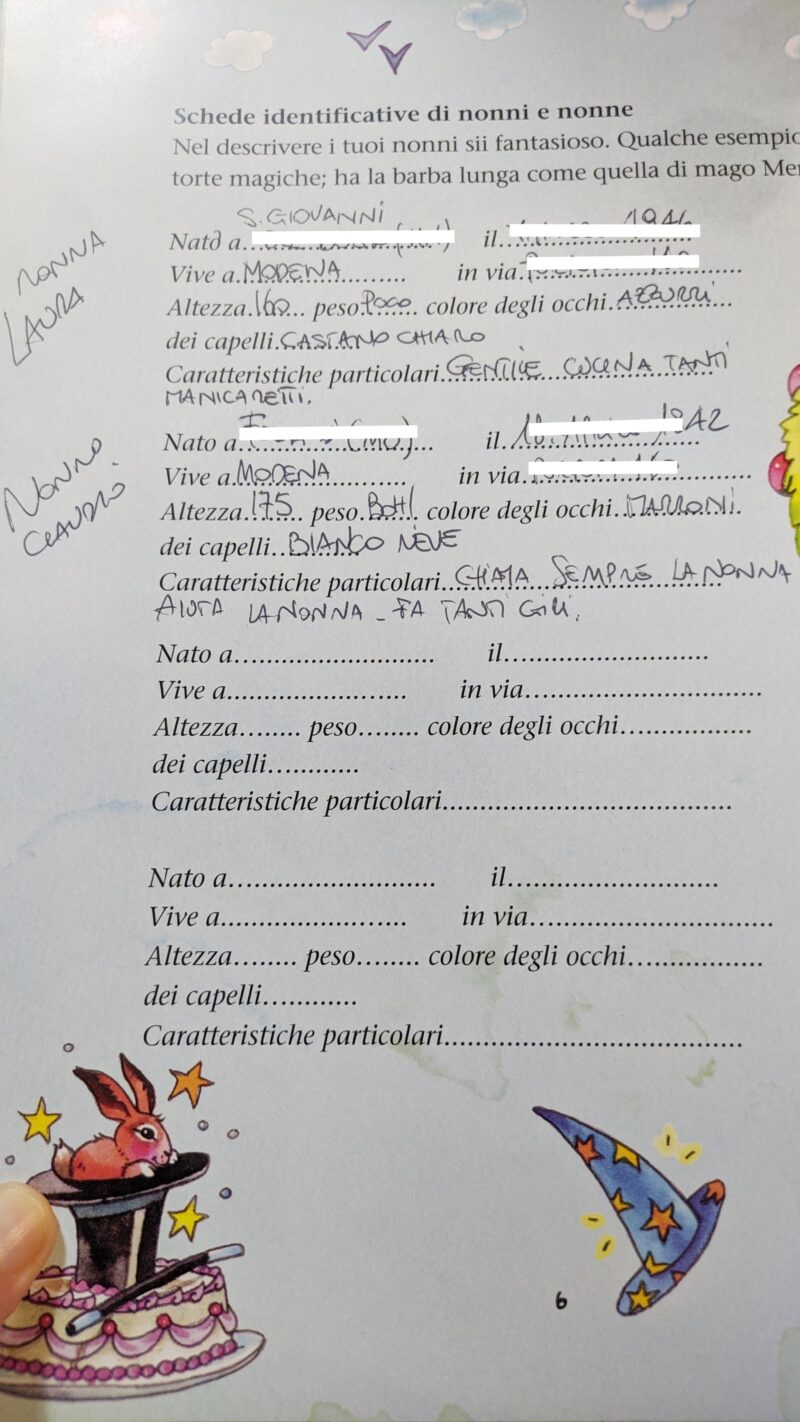 Schede identificative di nonni e nonne
Nel descrivere i tuoi nonni sii fantasioso. Qualche esempio
torte magiche; ha la barba lunga come quella di mago
NONNA
LAURA
S. GIOVANNI
Nato a il 1946
Vive a MODENA in via
Altezza 160 peso POCO colore degli occhi AZZURRI
dei capelli CASTANO CHIARO
Caratteristiche particolari GENTILE CUCINA TANTI
MANICARETTI.
NONNO
CLAUDIO
Nato a (MO) il 1942
Vive a MODENA in via
Altezza 175 peso BOH! colore degli occhi MARRONI
dei capelli BIANCO NEVE
Caratteristiche particolari CHIAMA SEMPRE LA NONNA
AIUTA LA NONNA - FA TANTI GIRI.
Nato a.............................. il..............................
Vive a........................... in via..................................
Altezza........ peso........ colore degli occhi...................
dei capelli............
Caratteristiche particolari..........................................
Nato a.............................. il..............................
Vive a........................... in via..................................
Altezza........ peso........ colore degli occhi...................
dei capelli............
Caratteristiche particolari..........................................
6